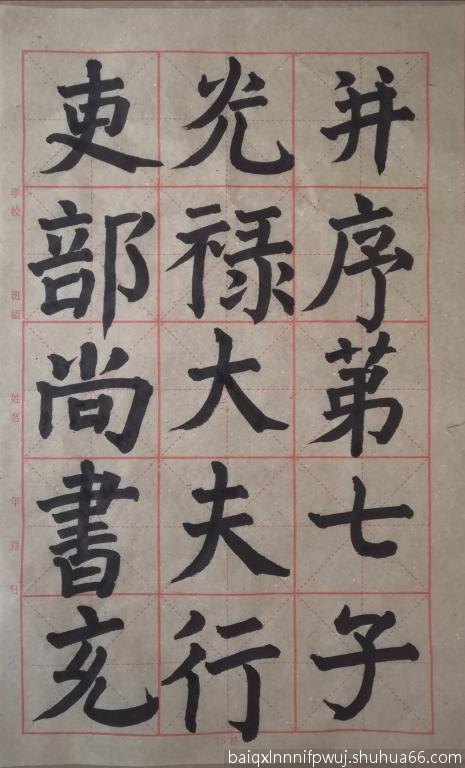 并序第七子
光禄大夫行
吏部尚書充
学校 班级 姓名 年 月 日
15格
baiqxlnnnifpwuj.shuhua66.com